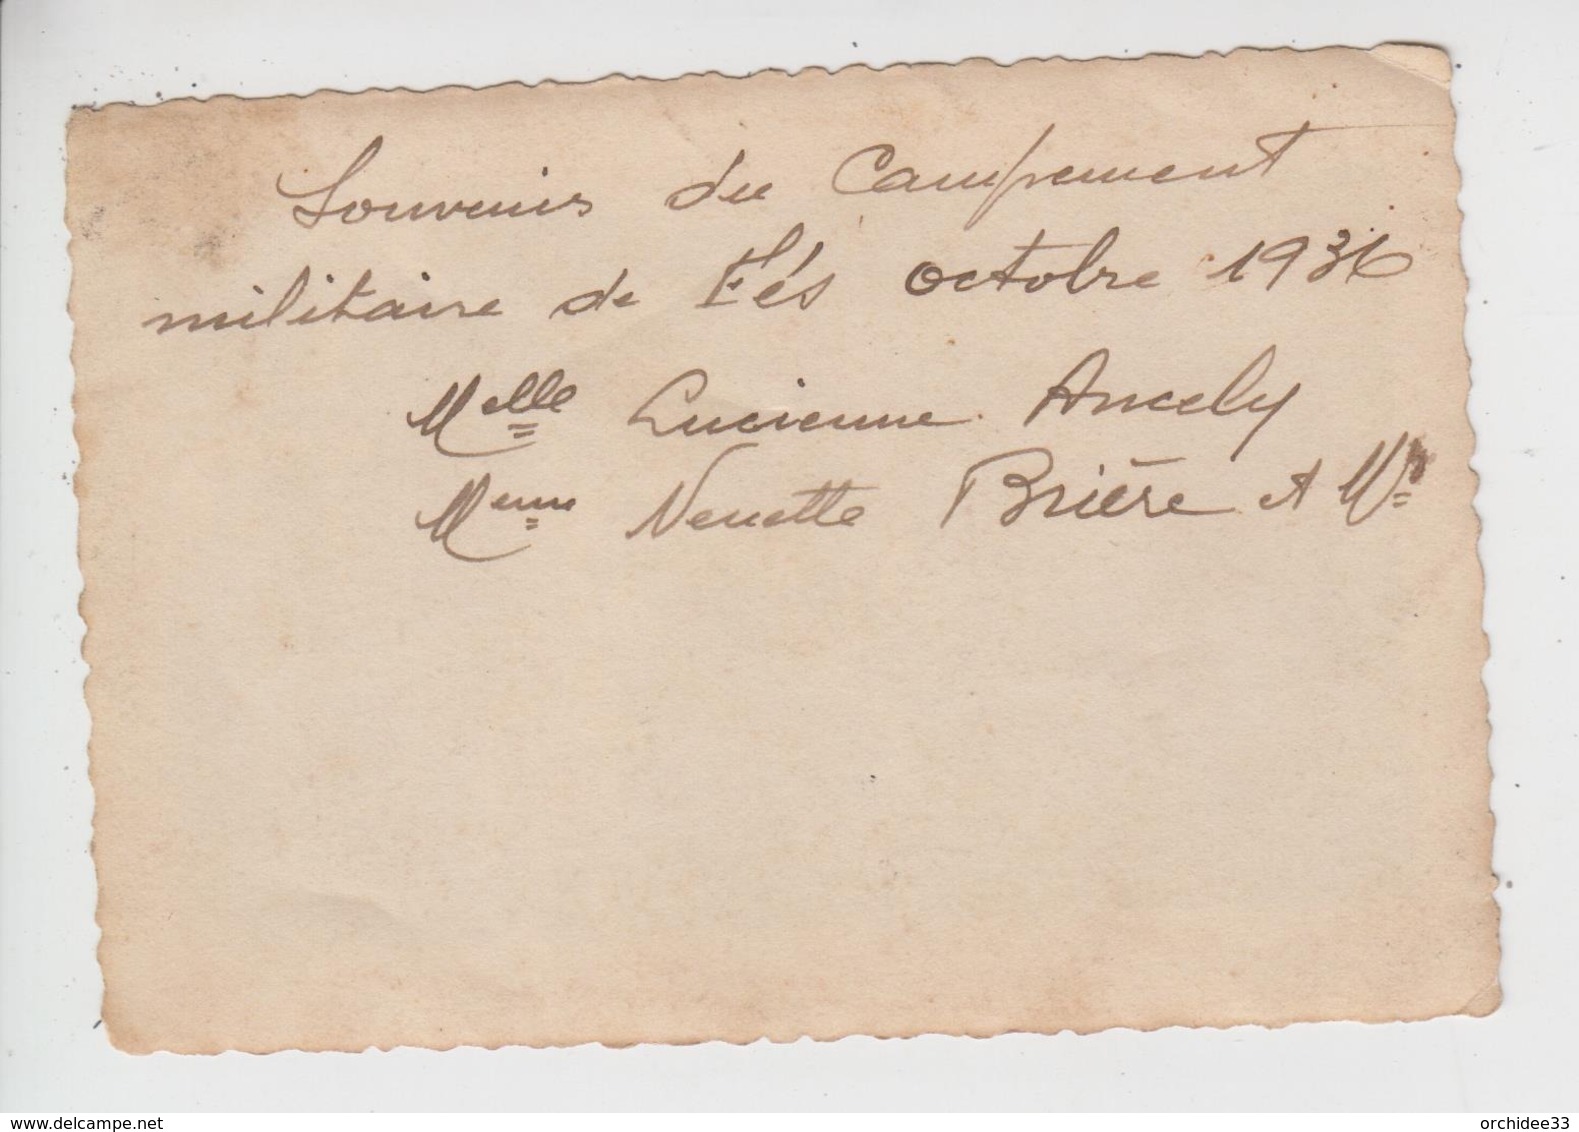 Souvenirs du Campement
militaire de Fés octobre 1936
Melle Lucienne Ancely
Meme Nenette Brière et Mr
www.delcampe.net
orchidee33